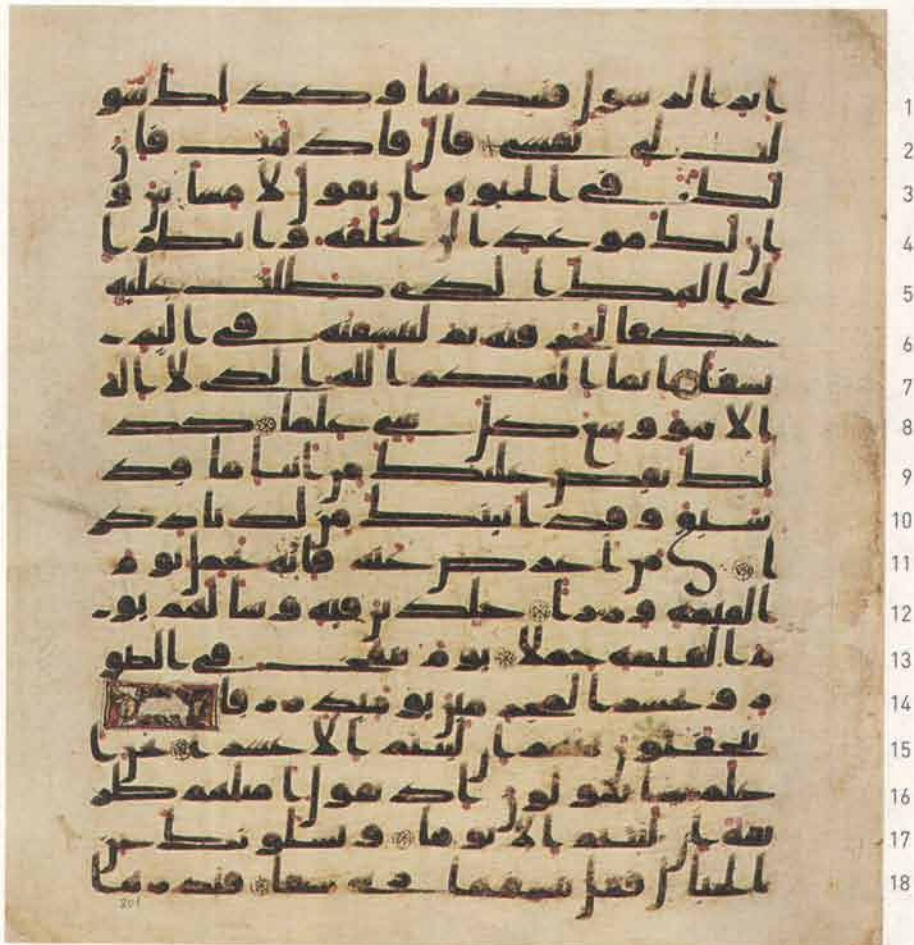 اثر الرسول فنبذتها وكذلك سو 1
لت لي نفسي قال فاذهب فان 2
لك في الحيوة ان تقول لا مساس و 3
ان لك موعدا لن تخلفه وانظر ا 4
لى الهك الذي ظلت عليه 5
عكفا لنحرقنه ثم لننسفنه في اليم 6
نسفا انما الهكم الله الذي لا اله 7
الا هو وسع كل شي علما كذ 8
لك نقص عليك من انبا ما قد 9
سبق وقد اتينك من لدنا ذكر 10
ا من اعرض عنه فانه يحمل يوم 11
القيمة وزرا خلدين فيه وسا لهم يو 12
م القيمة حملا يوم ينفخ في الصو 13
ر ونحشر المجرمين يومئذ زرقا 14
يتخفتون بينهم ان لبثتم الا عشرا نحن ا 15
علم بما يقولون اذ يقول امثلهم طر 16
يقة ان لبثتم الا يوما ويسلونك عن 17
الجبال فقل ينسفها ربي نسفا فيذرها 18